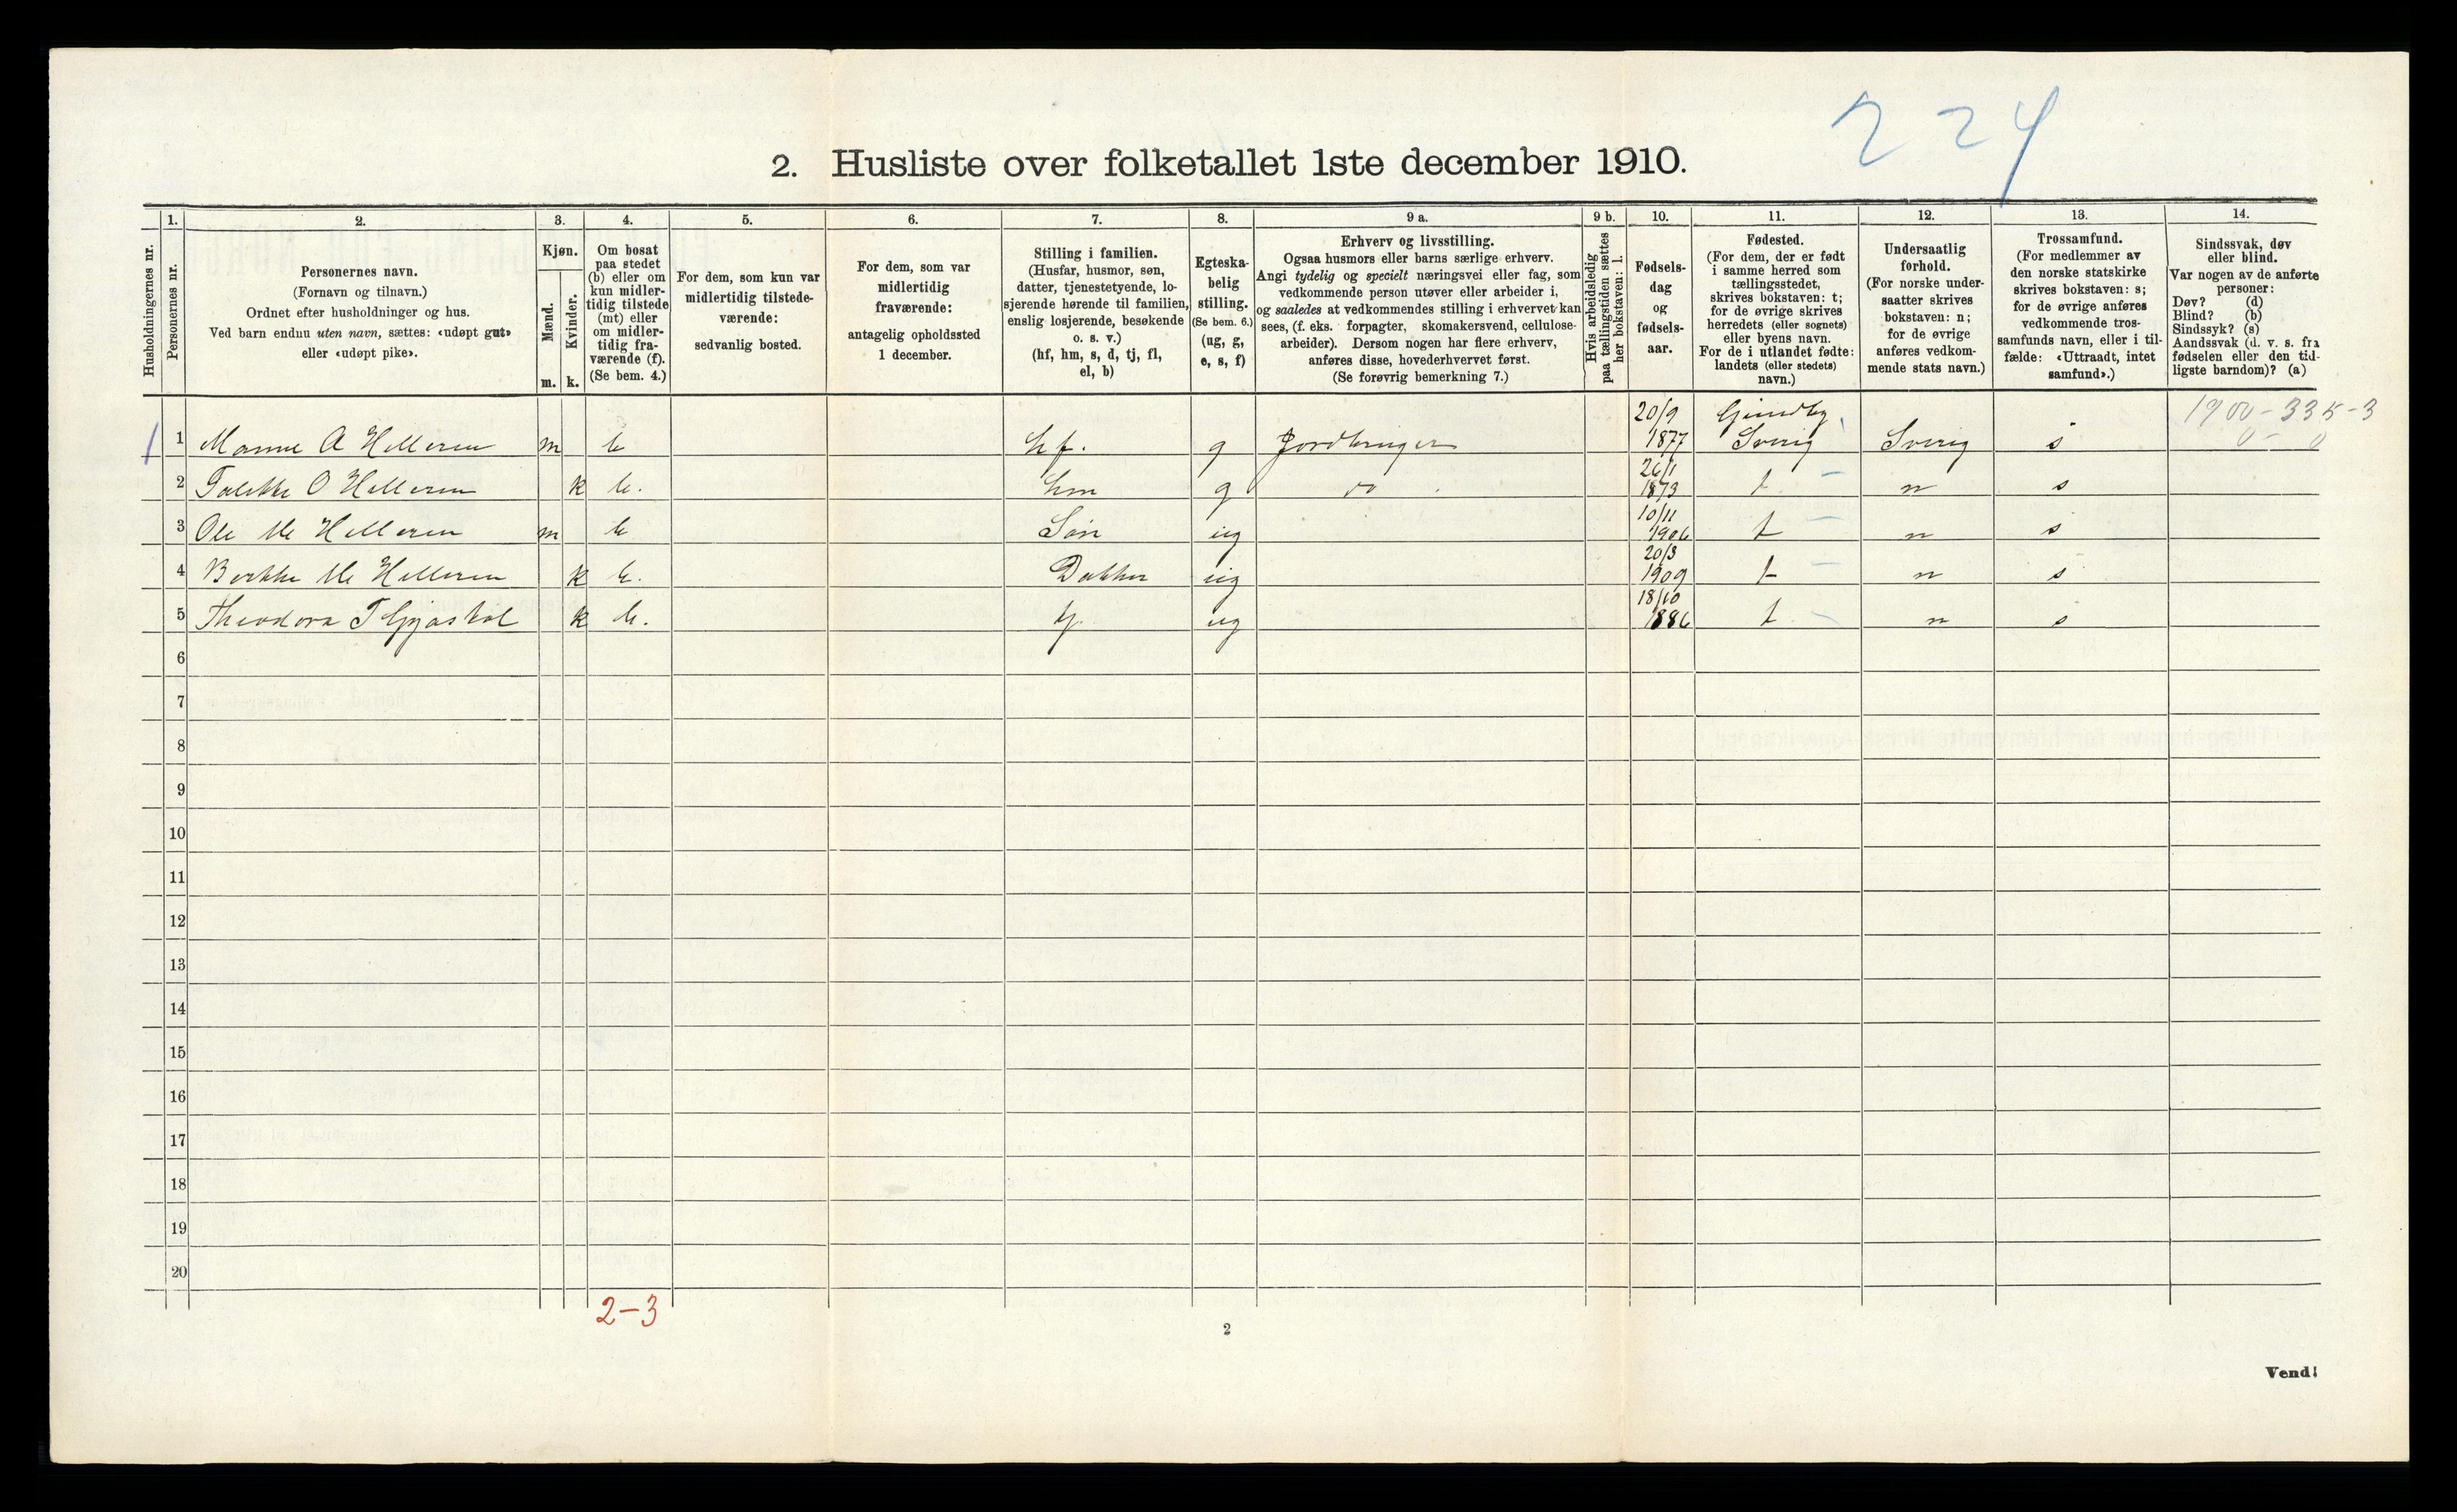 224
2. Husliste over folketallet 1ste december 1910.
Husholdningernes nr.
1.
Personernes nr.
2.
Personernes navn.
(Fornavn og tilnavn.)
Ordnet efter husholdninger og hus.
Ved barn endnu uten navn, sættes: «udøpt gut»
eller «udøpt pike».
3.
Kjøn.
Mænd.
Kvinder.
m. k.
4.
Om bosat
paa stedet
(b) eller om
kun midler-
tidig tilstede
(mt) eller
om midler-
tidig fra-
værende (f).
(Se bem. 4.)
5.
For dem, som kun var
midlertidig tilstede-
værende:
sedvanlig bosted.
6.
For dem, som var
midlertidig
fraværende:
antagelig opholdssted
1 december.
7.
Stilling i familien.
(Husfar, husmor, søn,
datter, tjenestetyende, lo-
sjerende hørende til familien,
enslig losjerende, besøkende
o. s. v.)
(hf, hm, s, d, tj, fl,
el, b)
8.
Egteska-
belig
stilling.
(Se bem. 6.)
(ug, g,
e, s, f)
9 a.
Erhverv og livsstilling.
Ogsaa husmors eller barns særlige erhverv.
Angi tydelig og specielt næringsvei eller fag, som
vedkommende person utøver eller arbeider i,
og saaledes at vedkommendes stilling i erhvervet kan
sees, (f. eks. forpagter, skomakersvend, cellulose-
arbeider). Dersom nogen har flere erhverv,
anføres disse, hovederhvervet først.
(Se forøvrig bemerkning 7.)
9 b.
Hvis arbeidsledig
paa tællingstiden sættes
her bokstaven: l.
10.
Fødsels-
dag
og
fødsels-
aar.
11.
Fødested.
(For dem, der er født
i samme herred som
tællingsstedet,
skrives bokstaven: t;
for de øvrige skrives
herredets (eller sognets)
eller byens navn.
For de i utlandet fødte:
landets (eller stedets)
navn.)
12.
Undersaatlig
forhold.
(For norske under-
saatter skrives
bokstaven: n;
for de øvrige
anføres vedkom-
mende stats navn.)
13.
Trossamfund.
(For medlemmer av
den norske statskirke
skrives bokstaven: s;
for de øvrige anføres
vedkommende tros-
samfunds navn, eller i til-
fælde: «Uttraadt, intet
samfund».)
14.
Sindssvak, døv
eller blind.
Var nogen av de anførte
personer:
Døv? (d)
Blind? (b)
Sindssyk? (s)
Aandssvak (d. v. s. fra
fødselen eller den tid-
ligste barndom)? (a)
20/9 1900-335-3
1 1 A Helleren m b hf. g Jordbruger 1877 Sverig Sverig s 0 - 0
26/1
2 O Helleren k b. hm g do 1873 t n s
10/11
3 Ole M Helleren m b Søn ug 1906 t n s
20/3
4 M Helleren k b. Datter ug 1909 t n s
18/10
5 Theodora T k b. tj ug 1886 t n s
6
7
8
9
10
11
12
13
14
15
16
17
18
19
20
2-3
2
Vend!